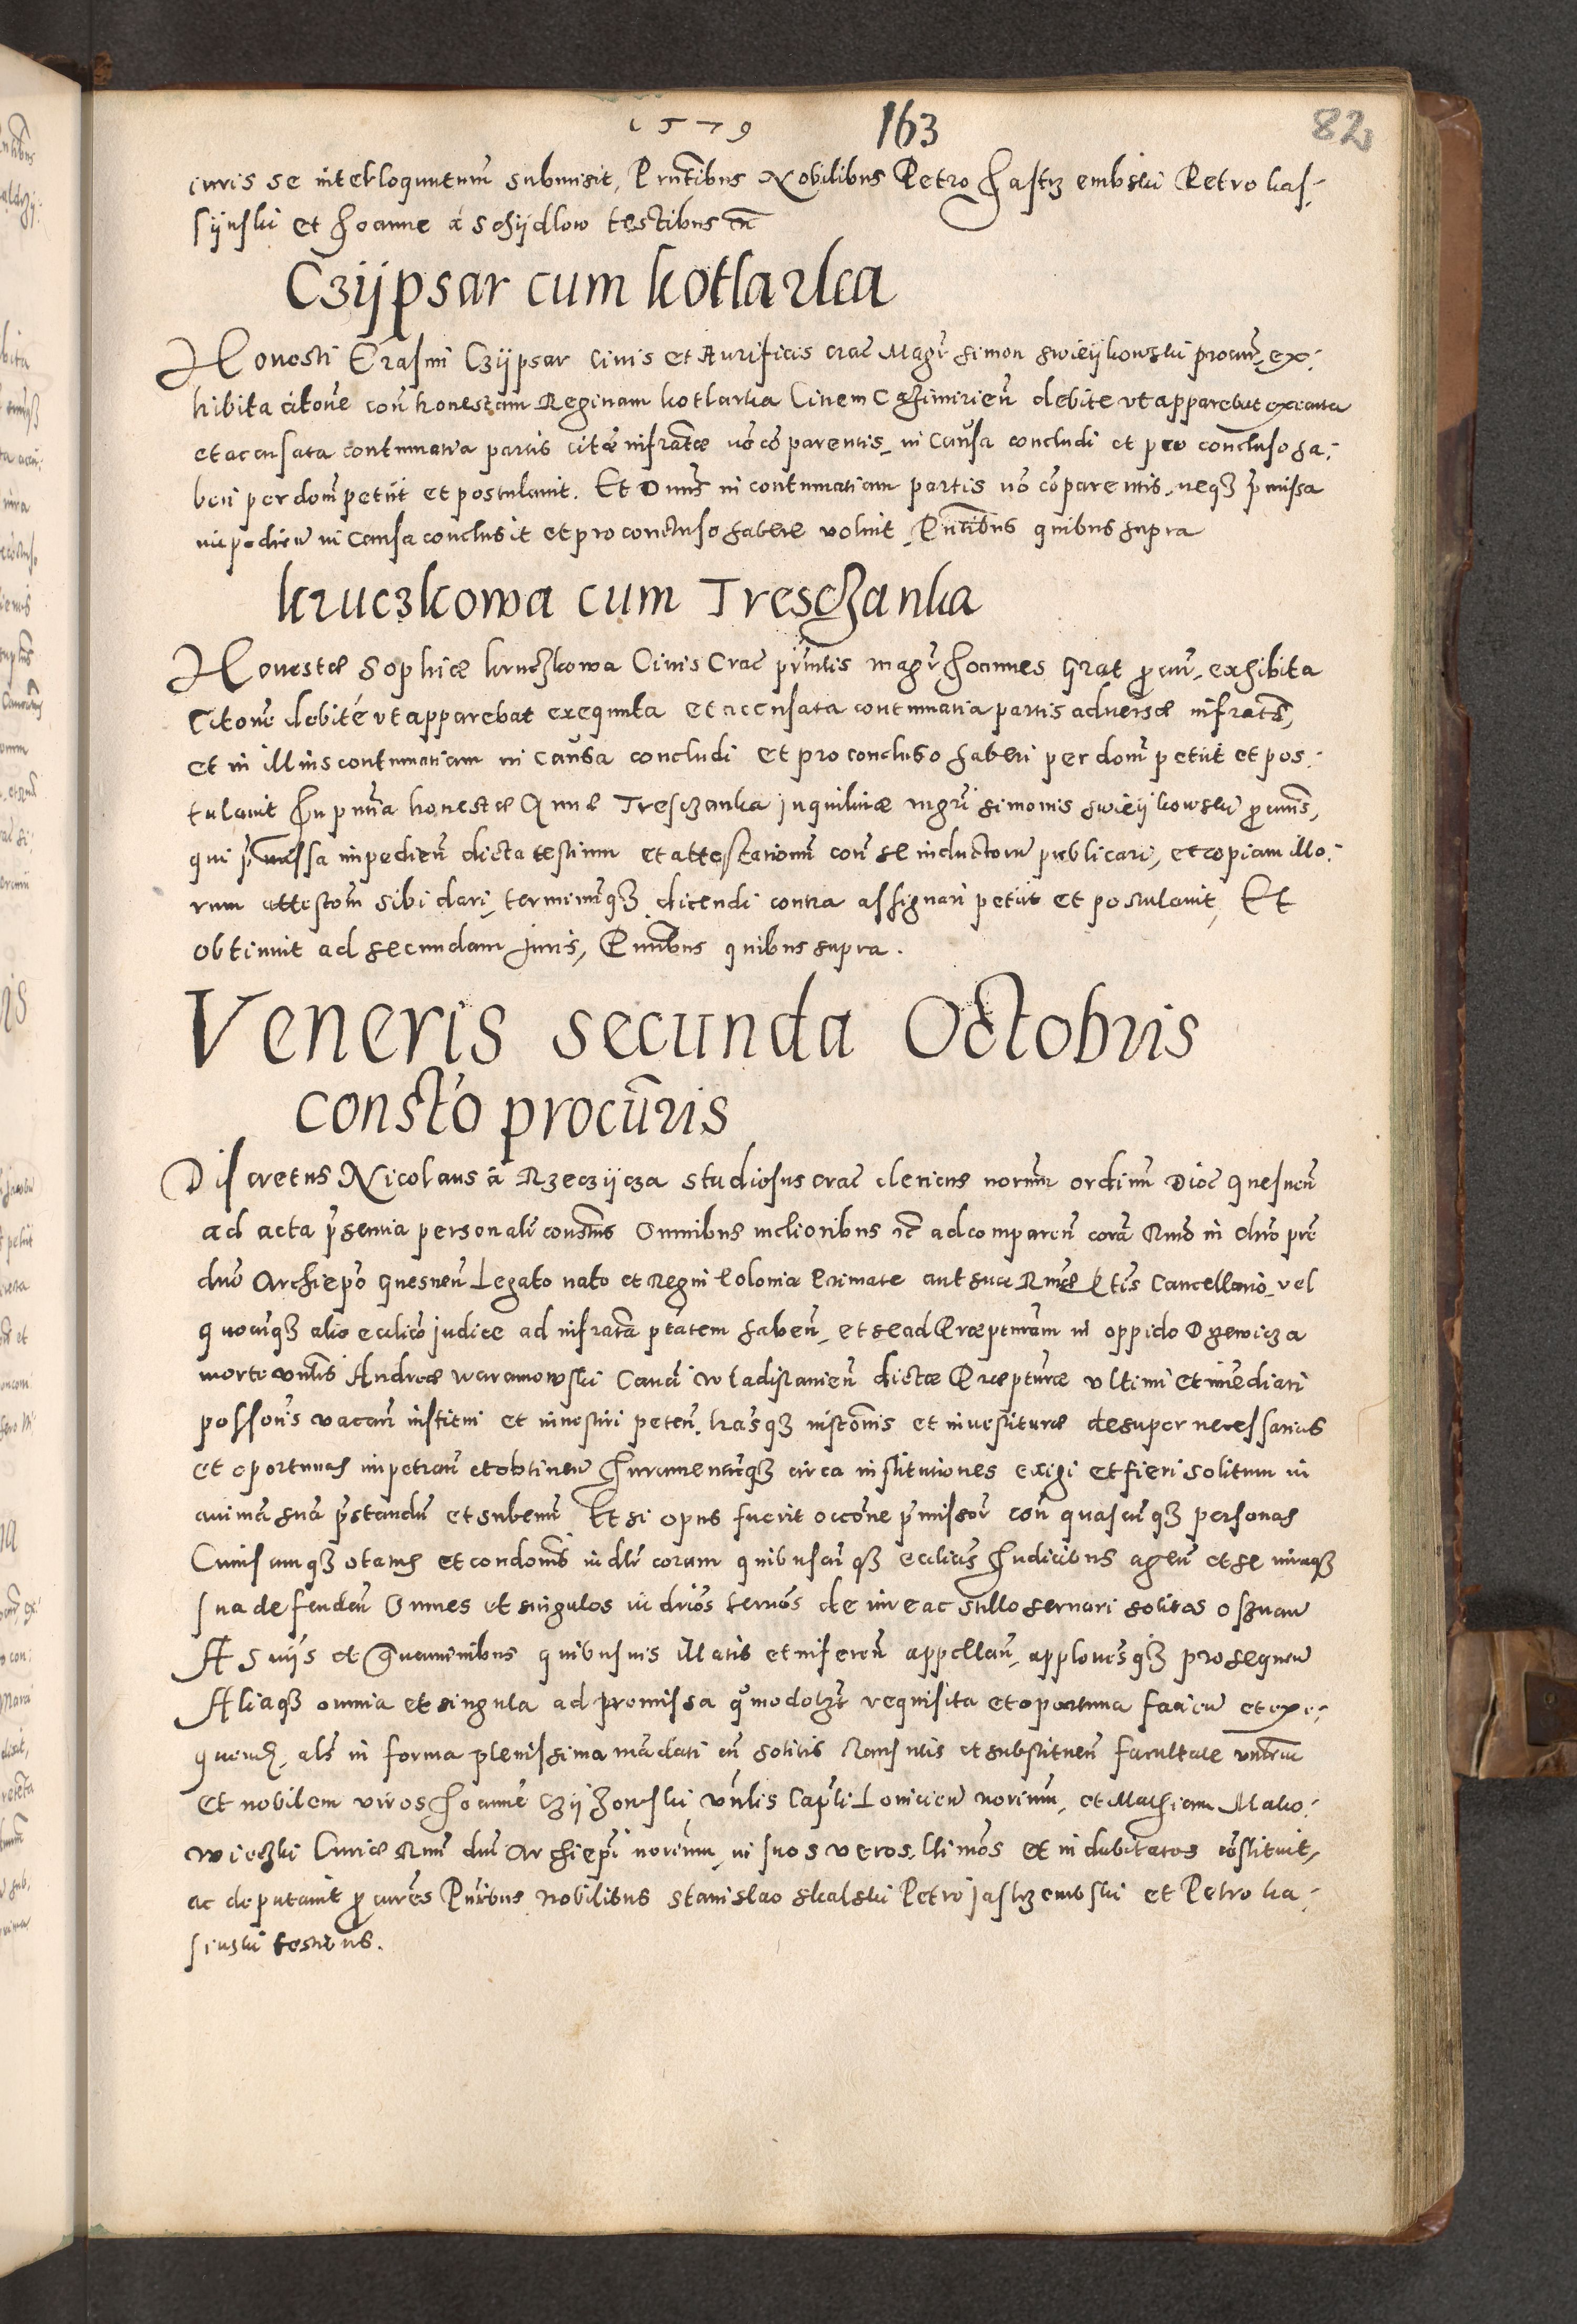 1579 163 82
iuris se interloquuturum submisit, Pntibus Nobilibus Petro Jastrzembski Petro kas¬
sijnski et Joanne á Schijdlow testibus etc
Czijpsar cum kotlarka
Honesti Erasmi Czijpsar Civis et Aurificis crac Magr Simon Swieijkowski procur, ex¬
hibita citone con honestam Reginam kotlarka Civem Casimirien debite ut apparebat executa
et accusata contumatia partis citae infratae no coparentis, in Causa concludi et pro concluso ha¬
beri per dom petiit et postulavit. Et Dnus in contumatiam partis no coparentis, neqz pmissa
impedien in Causa conclusit et pro concluso habere voluit, Pntibus quibus supra
kruczkowa cum Treschanka
Honestae Sophiae kruczkowa Civis Crac pntis magr Joannes Grat procur, exhibita
Citone debité ut apparebat exequuta et accusata contumatia partis adversae infratae,
et in illius contumatiam in Causa concludi et pro concluso haberi per dom petiit et pos¬
tulavit In pntia honestae Annae Tresczanka inquilinae mgri Simonis Swieijkowski procuris,
qui pmissa impedien dicta testium et attestationum con se inductorum publicari, et copiam illo¬
rum attestom sibi dari, terminumqz dicendi contra assignari petiit et postulavit, Et
obtinuit ad secundam Juris, Pntibus quibus supra.
Veneris secunda Octobris
consto procuris
Discretus Nicolaus á Rzeczijcza studiosus crac clericus minorum ordinum Dioc Gnesnen
ad acta psentia personalr constitus Omnibus melioribus etc ad comparen coram Rmo in chro pre
dno Archiepo Gnesnen Legato nato et Regni Poloniae Primate aut suae Rmae Ptis Cancellario, vel
quocunqz alio ecclico judice ad infrata ptatem haben, et se ad Praepturam in oppido Drzewicza
morte vnlis Andreae Waramowski Canci Wladislavien dictae Praepturae ultimi et immediati
possoris vacan institui et investiri peten, hasqz instonis et investiturae desuper necessarias
et oportunas impetran et obtinen Juramentumqz circa institutiones exigi et fieri solitum in
anima sua pstandum et subeund Et si opus fuerit occone pmissor con quascunqz personas
Cuiuscunqz status et condonis in dlr coram quibuscunqz ecclicis Judicibus agen et se iuraqz
sua defenden Omnes et singulos iudrios terminos de iure ac stillo servari solitos observan
A Suijs et Gravaminibus quibusvis illatis et inferen appellan, applonesqz prosequen
Aliaqz omnia et singula ad premissa quomodolzt requisita et oportuna facien et exe¬
quend, als in forma plenissima madati cu solitis clausulis et substituen facultate vnlem
Et nobilem viros Joanne Czijzowski vnlis Capli Lovicien norium, et Mathiam Mako¬
wieczki Curiae Rmi dni Archiepi norium, in suos veros, lltimos et indubitatos costituit,
ac deputavit procures Pntibus Nobilibus Stanislao Skalski Petro Jastrzembski et Petro ka¬
sinski testibus.